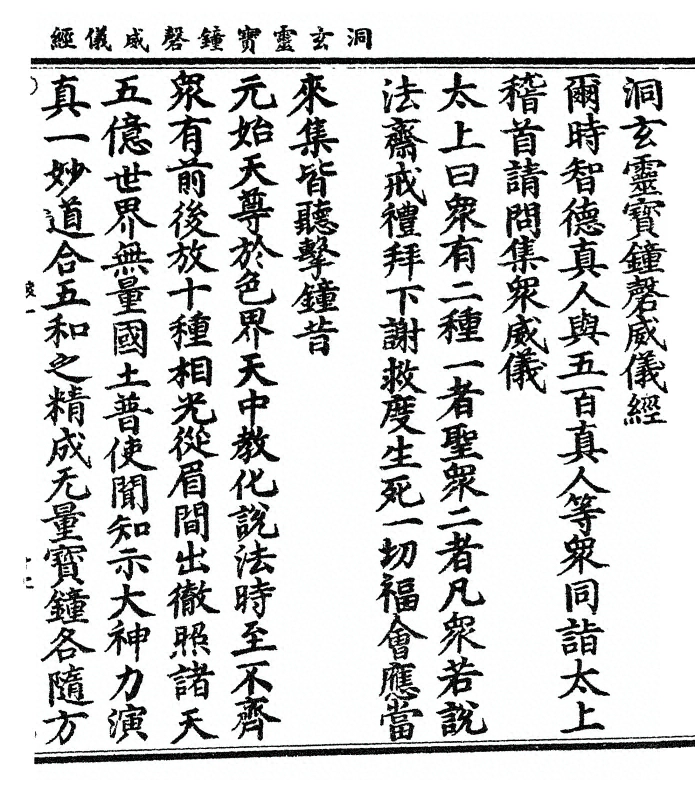 洞玄靈寶鐘磬威儀經
洞玄靈寶鐘磬威儀經
爾時智德真人與五百真人等衆同詣太上
稽首請問集衆威儀
太上曰衆有二種一者聖衆二者凡衆若說
法齋戒禮拜下謝救度生死一切福會應當
來集皆聽擊鐘昔
元始天尊於色界天中教化說法時至不齊
衆有前後放十種相光從眉間出徹照諸天
五億世界無量國土普使聞知示大神力演
真一妙道合五和之精成无量寶鐘各隨方